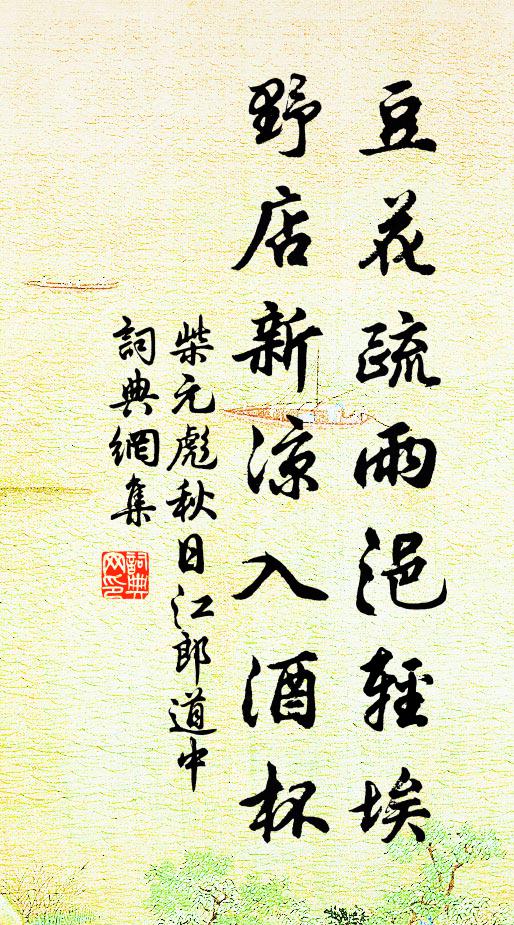 豆花疏雨浥輕埃
野店新涼入酒杯
柴元彪秋日江郎道中
詞典網集
詞典网印